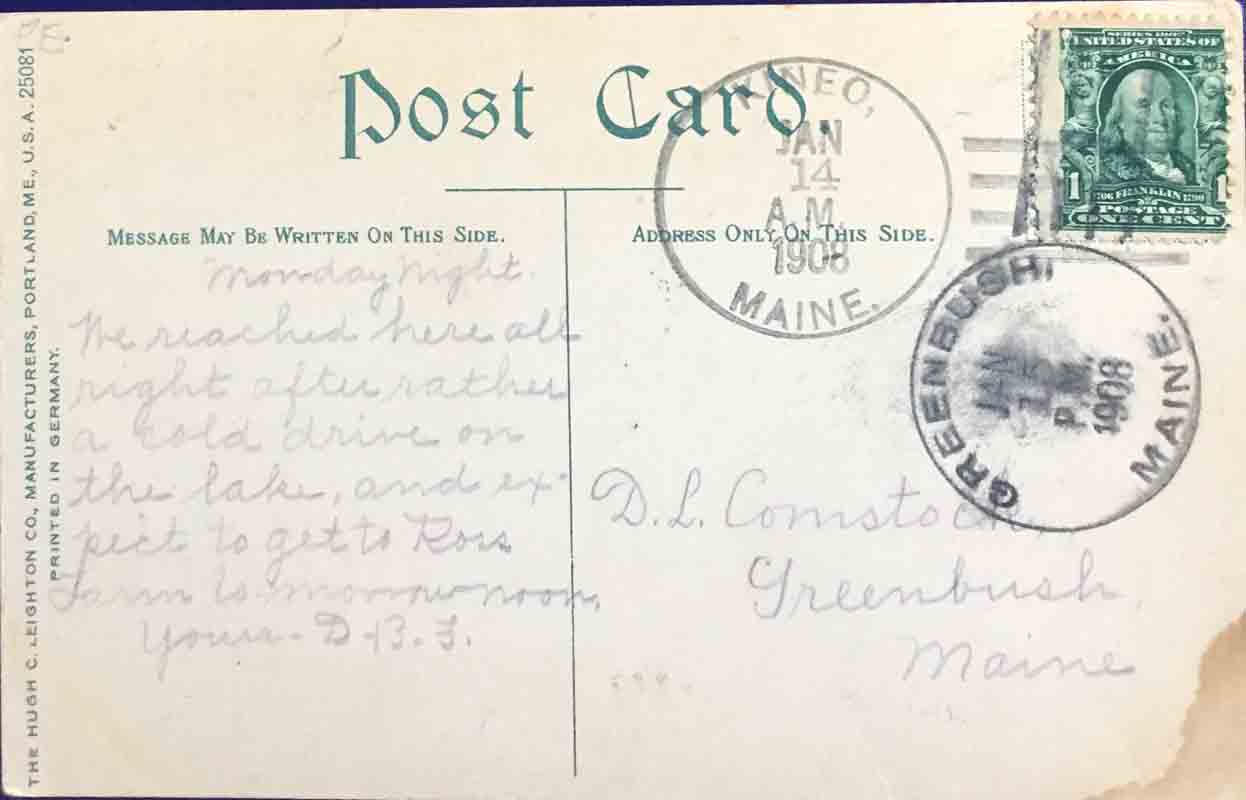 Post Card.
MESSAGE MAY BE WRITTEN ON THIS SIDE.
ADDRESS ONLY ON THIS SIDE.
THE HUGH C. LEIGHTON CO., MANUFACTURERS, PORTLAND, ME., U.S.A. 25081
PRINTED IN GERMANY.
KINEO,
JAN
14
A.M.
1908
MAINE.
SERIES 1902
UNITED STATES OF
AMERICA
1 1
1706 FRANKLIN 1790
POSTAGE
ONE CENT
GREENBUSH,
JAN
P.M.
1908
MAINE.
Monday Night.
We reached here all
right after rather
a cold drive on
the lake, and ex-
pect to get to Ross
Farm to-morrow noon.
Yours-
D.L. Comstock
Greenbush,
Maine